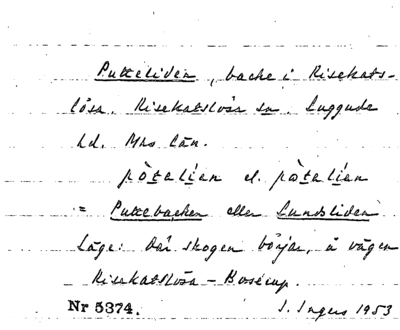 Putteliden, backe i Risekats-
lösa. Risekatslösa sn. Luggude
hd. Mhs län.
pòtalíen el. pòtalíen
= Puttebacken eller Lundsliden
Läge: Där skogen börjar, å vägen
Risekatslösa - Boserup.
Nr 5374. I. Ingers 1953